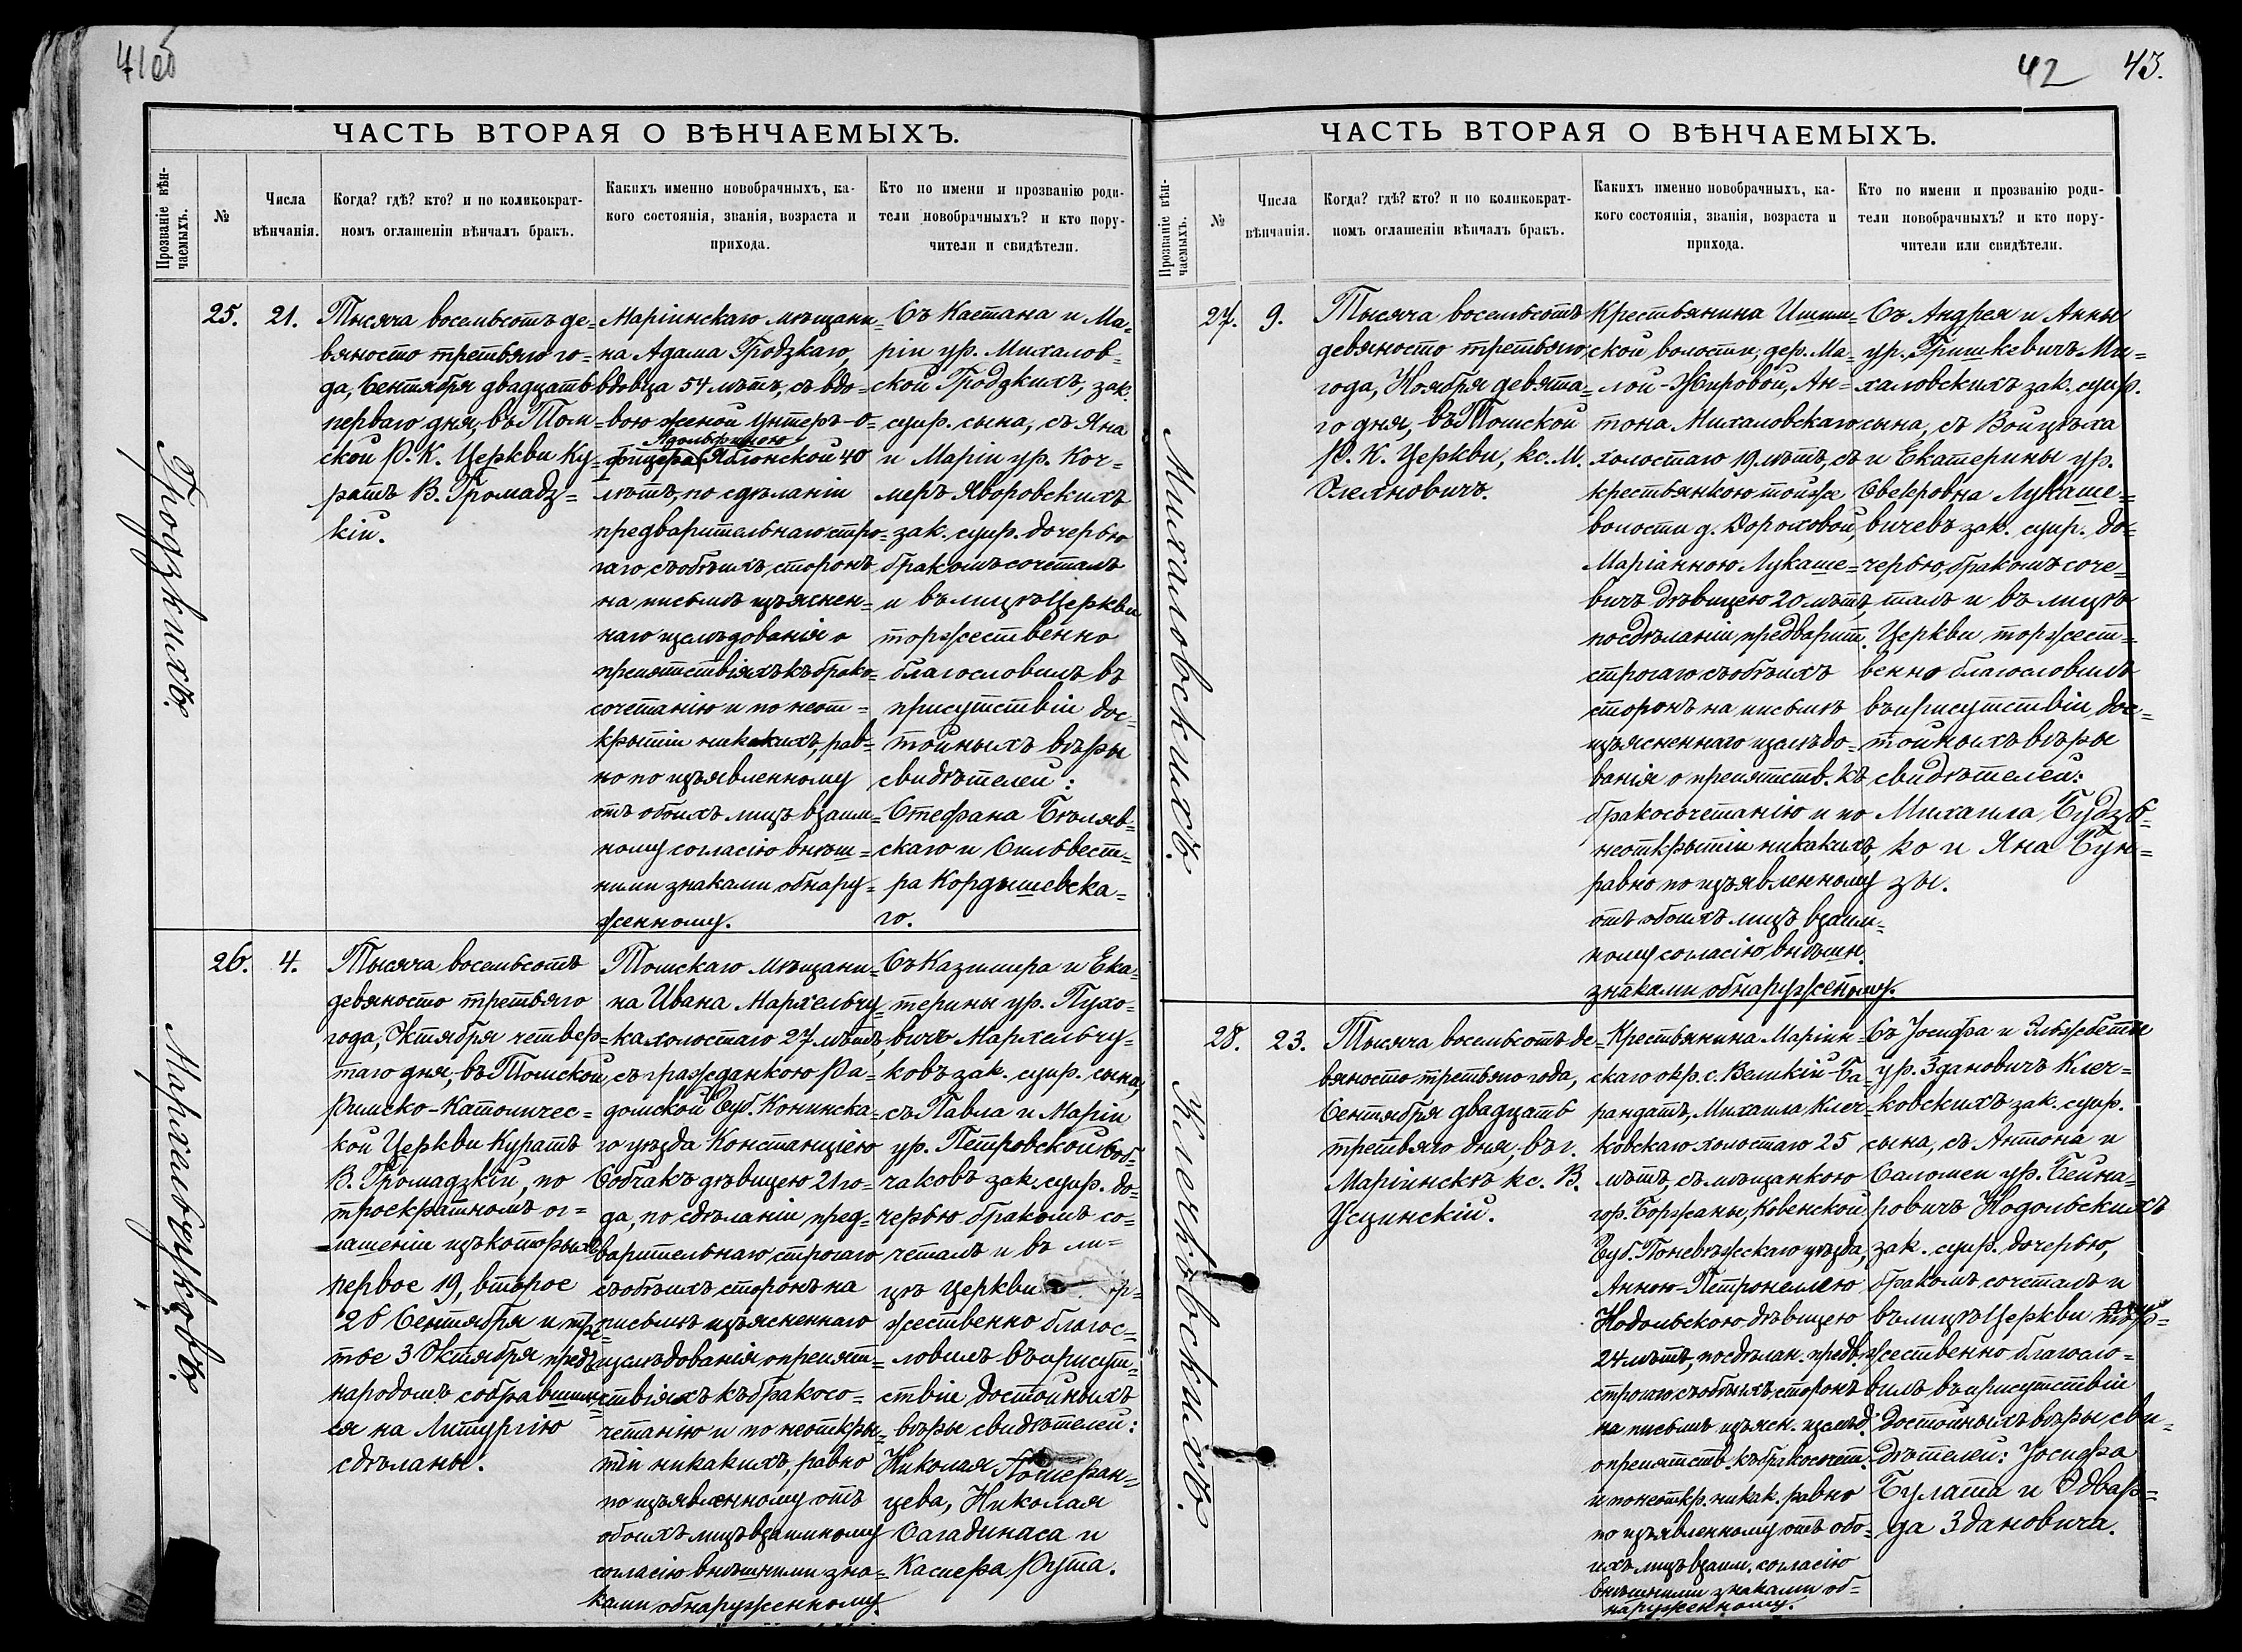 41об
ЧАСТЬ ВТОРАЯ О ВѢНЧАЕМЫХЪ.
Прозваніе вѣн-
чаемыхъ.
№
Числа
вѣнчанія.
Когда? гдѣ? кто? и по коликократ-
номъ оглашеніи вѣнчалъ бракъ.
Какихъ именно новобрачныхъ, ка-
кого состоянія, званія, возраста и
прихода.
Кто по имени и прозванію роди-
тели новобрачныхъ? и кто пору-
чители и свидѣтели.
Гродзкихъ.
25.
21.
Тысяча восемьсотъ де-
вяносто третьяго го-
да, Сентября двадцать
перваго дня, въ Том-
ской Р. К. Церкви Ку-
ратъ В. Громадз-
кій.
Маріинскаго мѣщани-
на Адама Гродзкаго,
вдовца 54 лѣтъ, съ вдо-
вою женой Унтеръ-о-
фицера Яблонской 40
лѣтъ, по сдѣланіи
предварительнаго стро-
гаго съ обѣихъ сторонъ
на письмѣ изъяснен-
наго изслѣдованія о
препятствіяхъ къ брако-
сочетанію и по неот-
крытіи никакихъ, рав-
но по изъявленному
отъ обоихъ лицъ взаим-
ному согласію внѣш-
ними знаками обнару-
женному.
Съ Каетана и Ма-
ріи ур. Михалов-
ской Гродзкихъ, зак.
супр. сына, съ Яна
и Маріи ур. Коч-
меръ Яворовскихъ
зак. супр. дочерью
бракомъ сочеталъ
и въ лицѣ Церкви
торжественно
благословилъ въ
присутствіи дос-
тойныхъ вѣры
свидѣтелей:
Стефана Бѣляв-
скаго и Сильвест-
ра Кордышевска-
го.
Мархельчуковъ.
26.
4.
Тысяча восемьсотъ
девяносто третьяго
года, Октября четвер-
таго дня, въ Томской
Римско-Католичес-
кой Церкви Куратъ
В. Громадзкій, по
троекратномъ ог-
лашеніи изъ которыхъ
первое 19, второе
26 Сентября и тре-
тье 3 Октября предъ
народомъ собравшим-
ся на Литургію
сдѣланы.
Томскаго мѣщани-
на Ивана Мархельчу-
ка холостаго 27 лѣтъ,
съ гражданкою Ра-
домской Губ. Конинска-
го уѣзда Констанціею
Собчакъ дѣвицею 21 го-
да, по сдѣланіи пред-
варительнаго строгаго
съ обѣихъ сторонъ на
письмѣ изъясненнаго
изслѣдованія о препят-
ствіяхъ къ бракосо-
четанію и по неоткры-
тіи никакихъ, равно
по изъявленному отъ
обоихъ лицъ взаимному
согласію внѣшними зна-
ками обнаруженному.
Съ Казимира и Ека-
терины ур. Пухо-
вичъ Мархельчу-
ковъ зак. супр. сына,
съ Павла и Маріи
ур. Петровской Соб-
чаковъ зак. супр. до-
черью бракомъ со-
четалъ и въ ли-
цѣ Церкви
жественно благос-
ловилъ въ присут-
ствіи достойныхъ
вѣры свидѣтелей:
Николая
цева, Николая
Сагадинаса и
Каспера Рута.
42
43.
ЧАСТЬ ВТОРАЯ О ВѢНЧАЕМЫХЪ.
Прозваніе вѣн-
чаемыхъ.
№
Числа
вѣнчанія.
Когда? гдѣ? кто? и по коликократ-
номъ оглашеніи вѣнчалъ бракъ.
Какихъ именно новобрачныхъ, ка-
кого состоянія, званія, возраста и
прихода.
Кто по имени и прозванію роди-
тели новобрачныхъ? и кто пору-
чители или свидѣтели.
Михаловскихъ.
27.
9.
Тысяча восемьсотъ
девяносто третьяго
года, Ноября девята-
го дня, въ Томской
Р. К. Церкви, кс. М.
Олехновичъ.
Крестьянина Ишим-
ской волости, дер. Ма-
лой-Жировой, Ан-
тона Михаловскаго
холостаго 19 лѣтъ, съ
крестьянкою тойже
волости д. Дороховой,
Маріанною Лукаше-
вичъ дѣвицею 20 лѣтъ,
по сдѣланіи предварит.
строгаго съ обѣихъ
сторонъ на письмѣ
изъясненнаго изслѣдо-
ванія о препятств. къ
бракосочетанію и по
неоткрытіи никакихъ,
равно по изъявленному
отъ обоихъ лицъ взаим-
ному согласію внѣшн.
знаками обнаруженному.
Съ Андрея и Анны
ур. Гришкевичъ Ми-
халовскихъ зак. супр.
сына, съ Войцѣха
и Екатерины ур.
Свекровна Лукаше-
вичевъ зак. супр. до-
черью, бракомъ соче-
талъ и въ лицѣ
Церкви торжест-
венно благословилъ
въ присутствіи дос-
тойныхъ вѣры
свидѣтелей:
Михаила Будзь-
ко и Яна Бун-
зы.
Клечковскихъ.
28.
23.
Тысяча восемьсотъ де-
вяносто третьяго года,
Сентября двадцать
третьяго дня, въ г.
Маріинскѣ кс. В.
Усцинскій.
Крестьянина Маріин-
скаго окр. с. Великій-Ба-
рандатъ, Михаила Клеч-
ковскаго холостаго 25
лѣтъ, съ мѣщанкою
гор. Боржаны, Ковенской
Губ. Поневѣжскаго уѣзда,
Анною-Петронеллею
Нодольскою дѣвицею
24 лѣтъ, по сдѣлан. предв.
строгаго съ обѣихъ сторонъ
на письмѣ изъясн. изслѣд.
о препятств. къ бракосочет.
и по неоткр. никак. равно
по изъявленному отъ обо-
ихъ лицъ взаим. согласію
внѣшними знаками об-
наруженному.
Съ Іосифа и Эльжбеты
ур. Здановичъ Клеч-
ковскихъ зак. супр.
сына, съ Антона и
Саломеи ур. Бейна-
ровичъ Нодольскихъ
зак. супр. дочерью,
бракомъ сочеталъ и
въ лицѣ Церкви тор-
жественно благосло-
вилъ въ присутствіи
достойныхъ вѣры сви-
дѣтелей: Іосифа
Булата и Эдвар-
да Здановича.